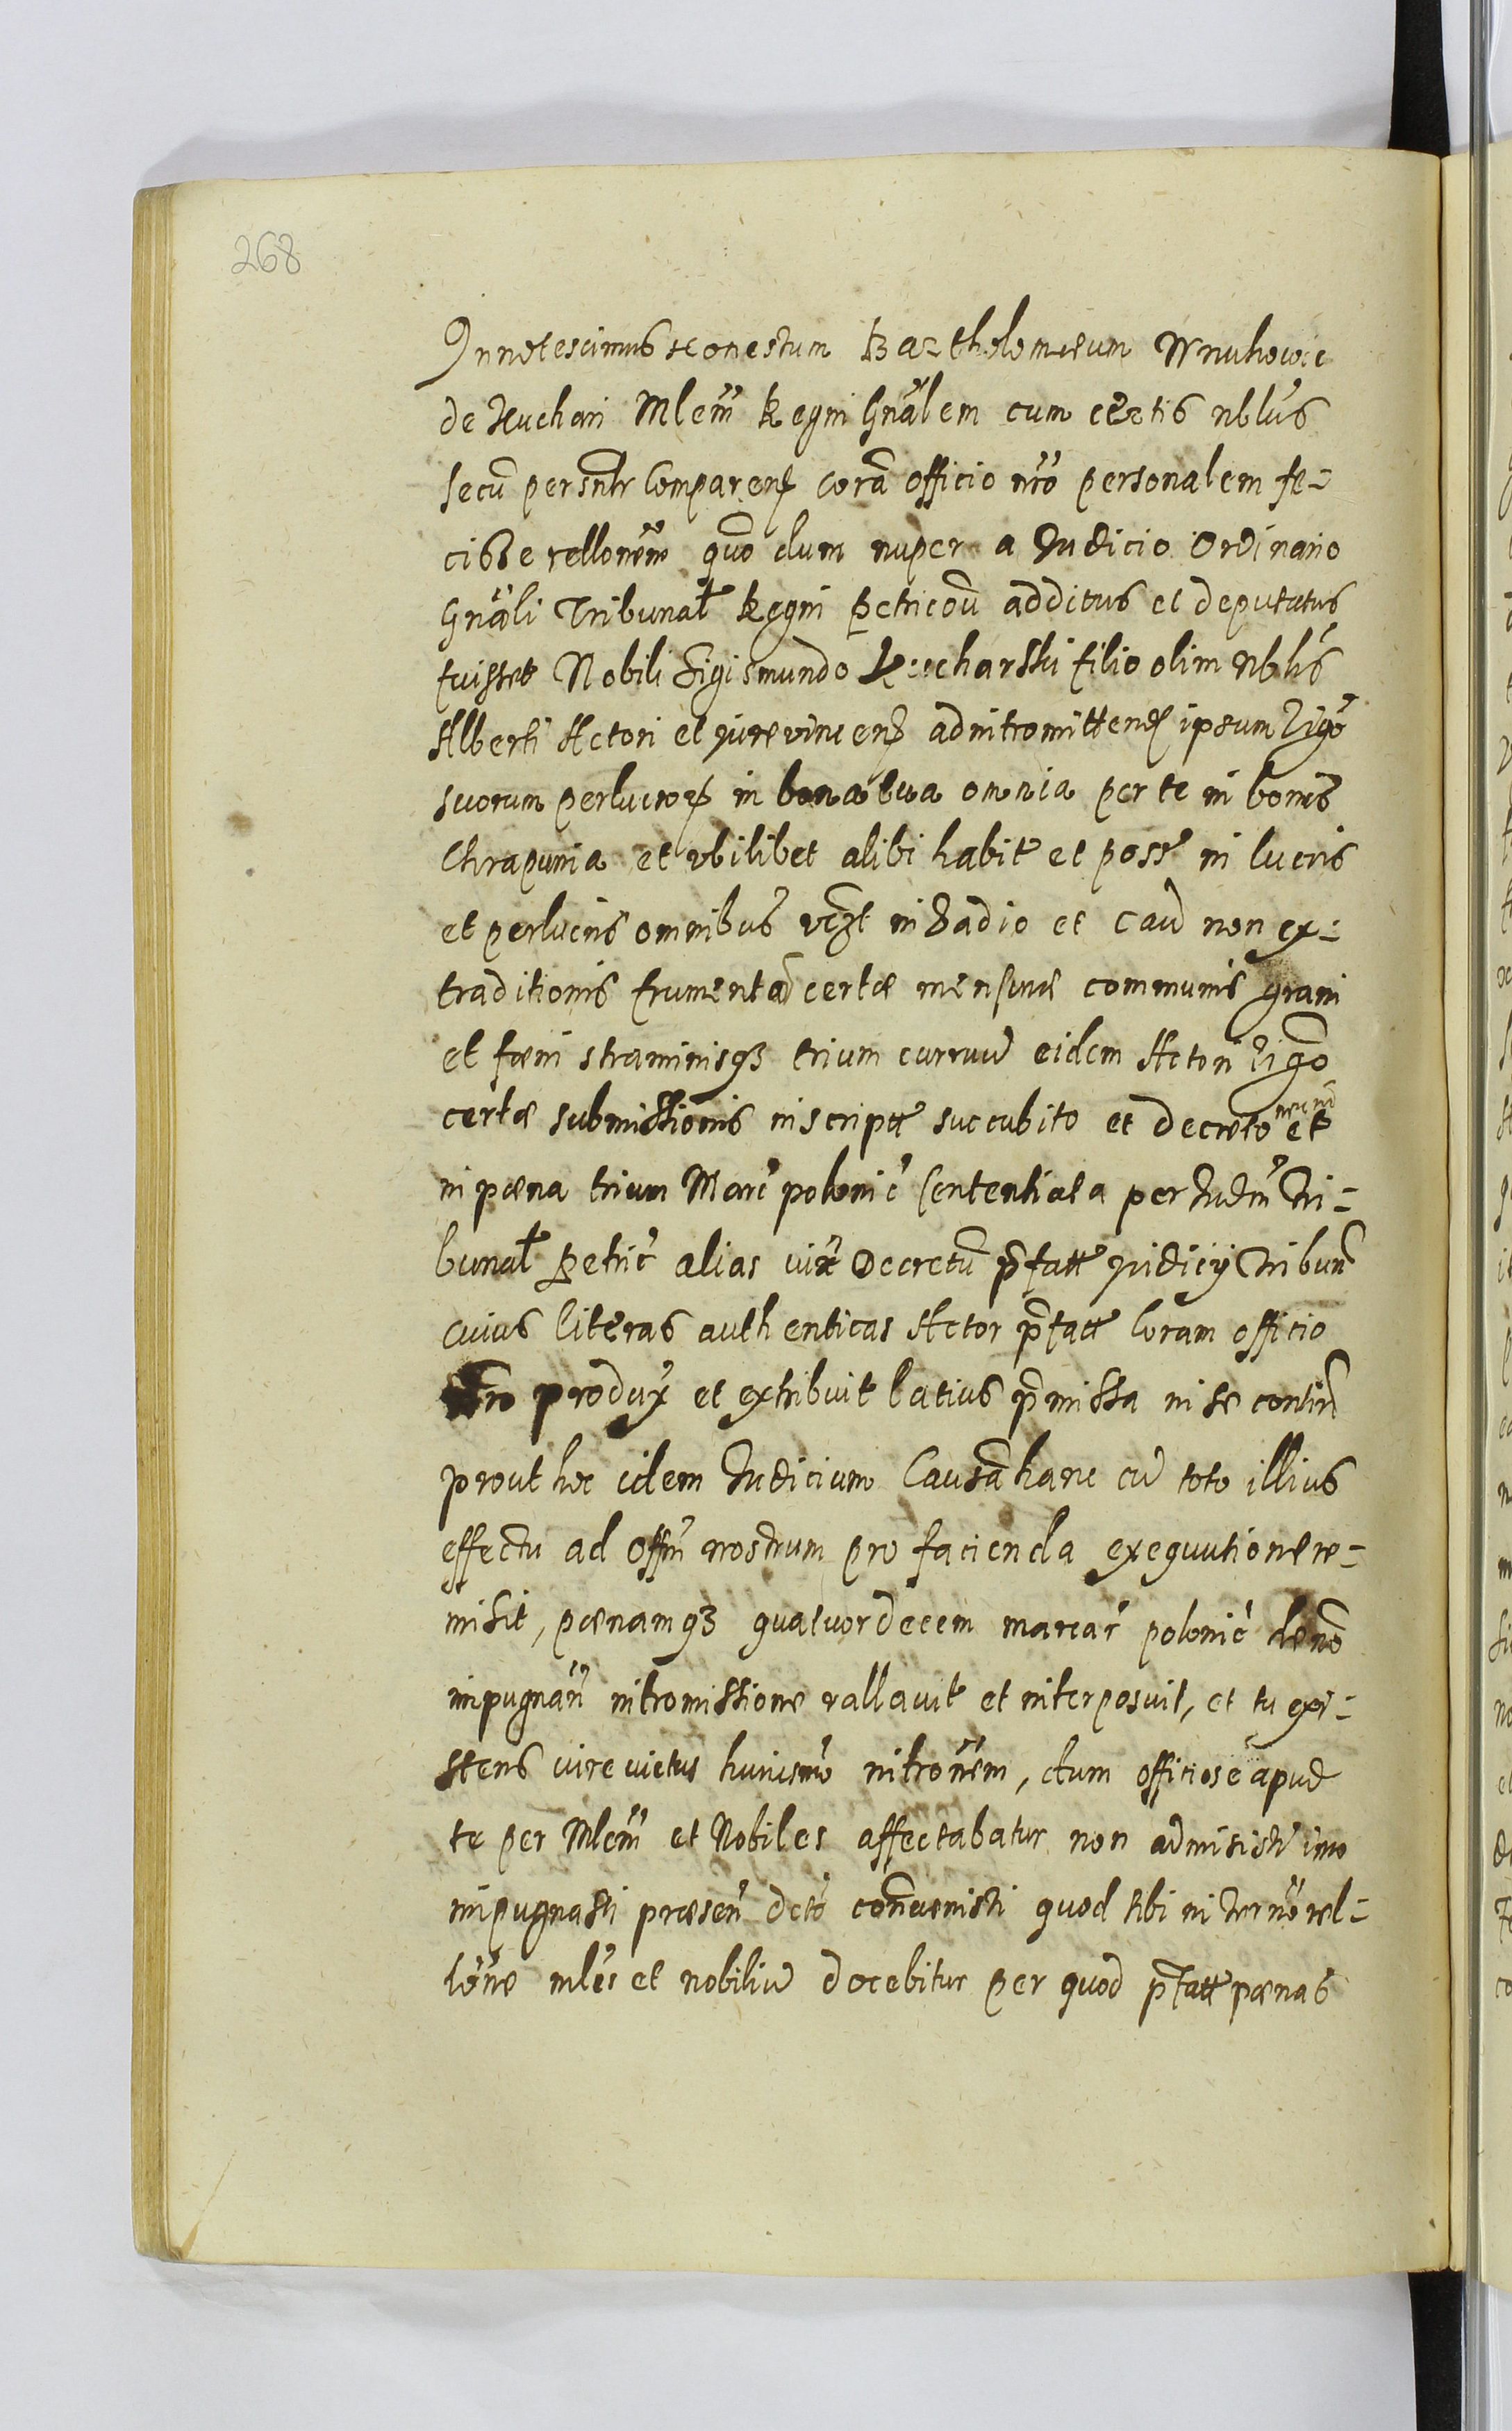 268
Innotescimus Honestum Bartholomæum Wnukowic
de Kuchari Mlem Regni Gnalem cum certis nblus
secu persntr Comparen Cora officio nro personalem fe-
cisse rellonem quo dum nuper a Iudicio Ordinario
Gnali Tribunal Regni Petricou additus et deputatus
fuisset Nobili Sigismundo Kucharski filio olim Nblis
Alberti Actori et iurevincen ad intromitten ipsum vigo
suorum perlucror in bona tua omnia per te in bonis
Chrapunia et vbilibet alibi habit et poss in lucris
et perlucris omnibus vczt in Vadio et Cau non ex-
traditionis frumentor certæ mensuræ communis grani
et fæni straminisq3 trium curruu eidem Actori vigo
certæ submissionis inscript succubito et decreto et
in pæna trium Marc polonic sententiata per Iudm Tri-
bunal Petric alias iux Decretu pfatt Iudicij Tribun
cuius literas authenticas Actor pfatt Coram officio
nro produx et exhibuit latius pmissa in se contin
prout hoc idem Iudicium Causa hanc cu toto illius
effectu ad Offm nostrum pro facienda exequutione re-
misit, pænamq3 quatuordecem marcar polonic de no
impugnan intromissione vallauit et interposuit, et tu exi-
stens iure victus huiusmo intronem, dum officiose apud
te per Mlem et Nobiles affectabatur non admisisti imo
impugnasti præsen dcto conuenisti quod tibi in Terno rel-
lone mles et nobiliu docebitur per quod pfatt pænas